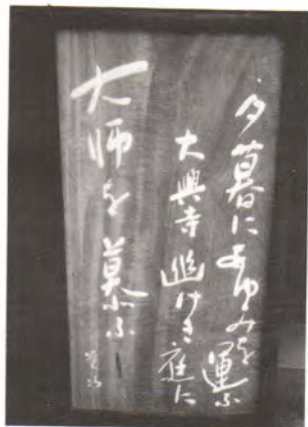 夕暮にあゆみを運ぶ
大興寺幽けき庭に
大師を慕ふ